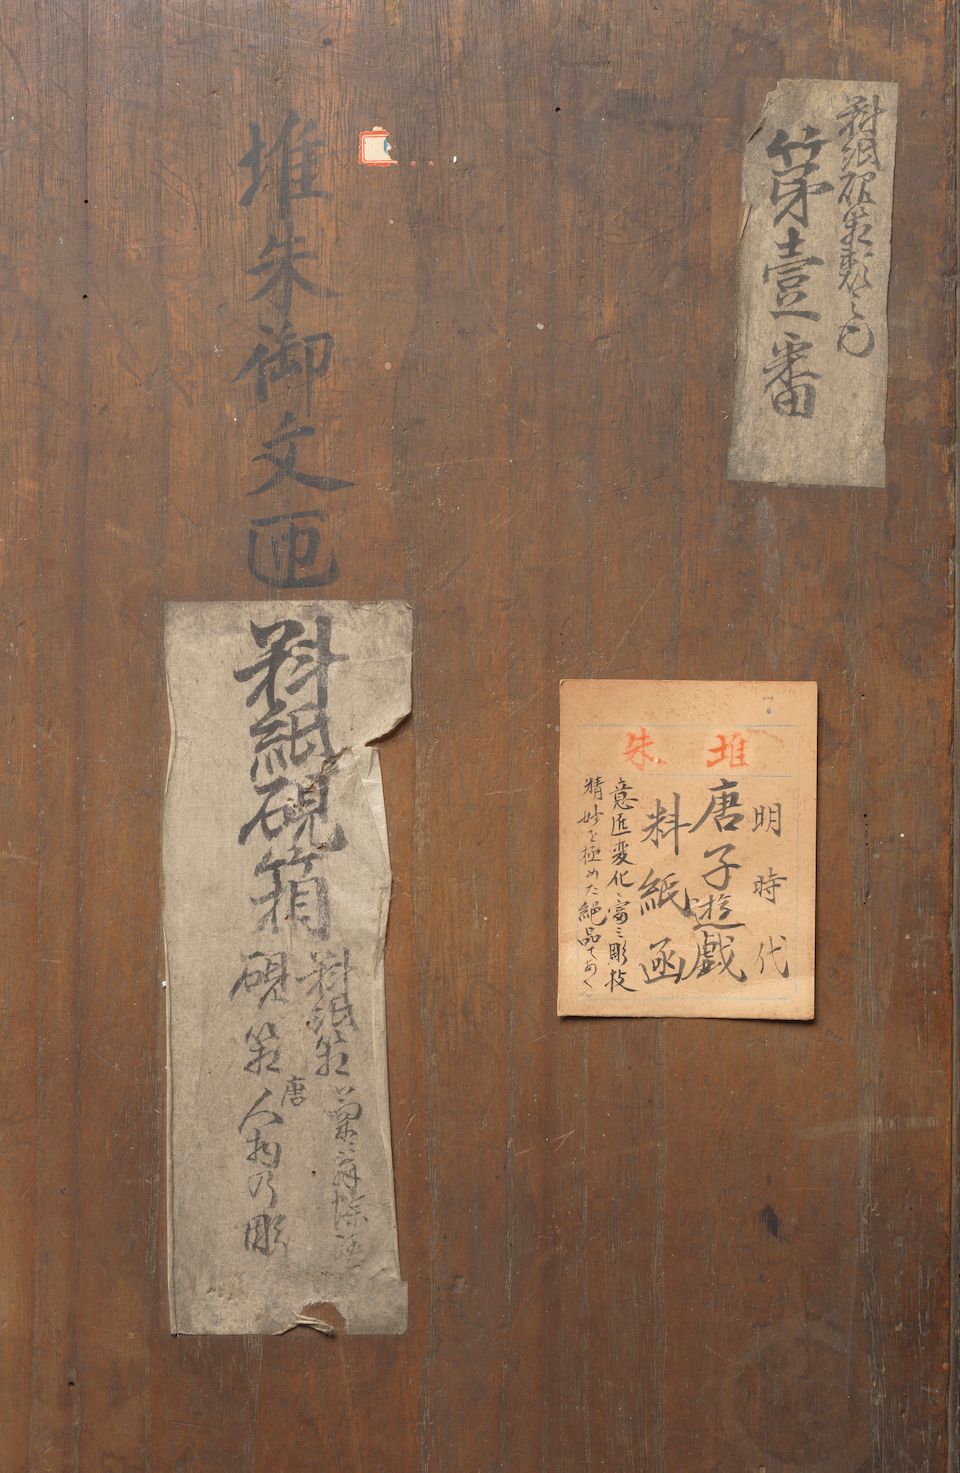 料紙硯箱類之内
第壹番
堆朱御文匣
料紙硯箱
料紙箱
硯箱 唐人物乃彫
堆朱
明時代
唐子遊戯
料紙函
意匠変化に富み彫技
精妙を極めた絶品である